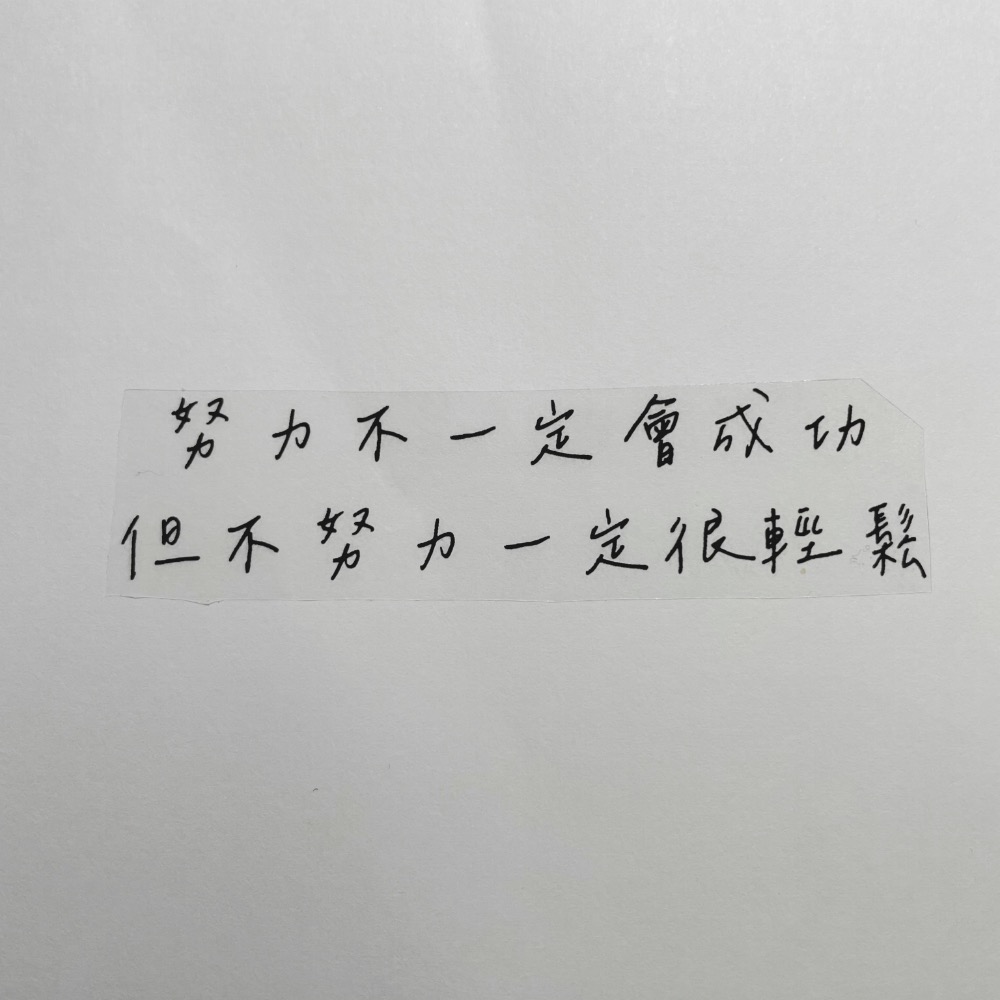 努力不一定會成功
但不努力一定很輕鬆